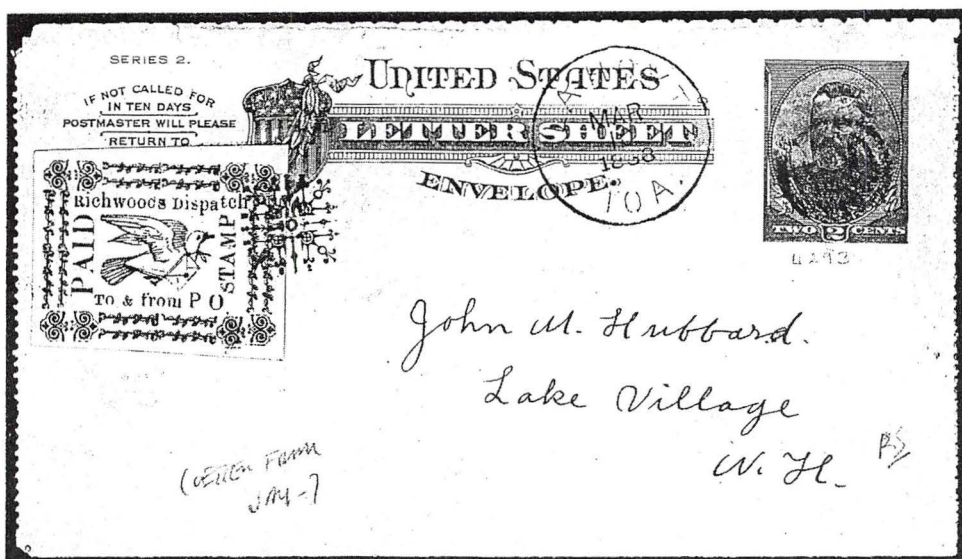 SERIES 2.
IF NOT CALLED FOR
IN TEN DAYS
POSTMASTER WILL PLEASE
RETURN TO
UNITED STATES
LETTER SHEET
ENVELOPE.
MAR
IOA.
TWO 2 CENTS
4293
Richwoods Dispatch
PAID
STAMP
To & from P O
John M. Hubbard.
Lake Village
N. H.
(LETTER FROM